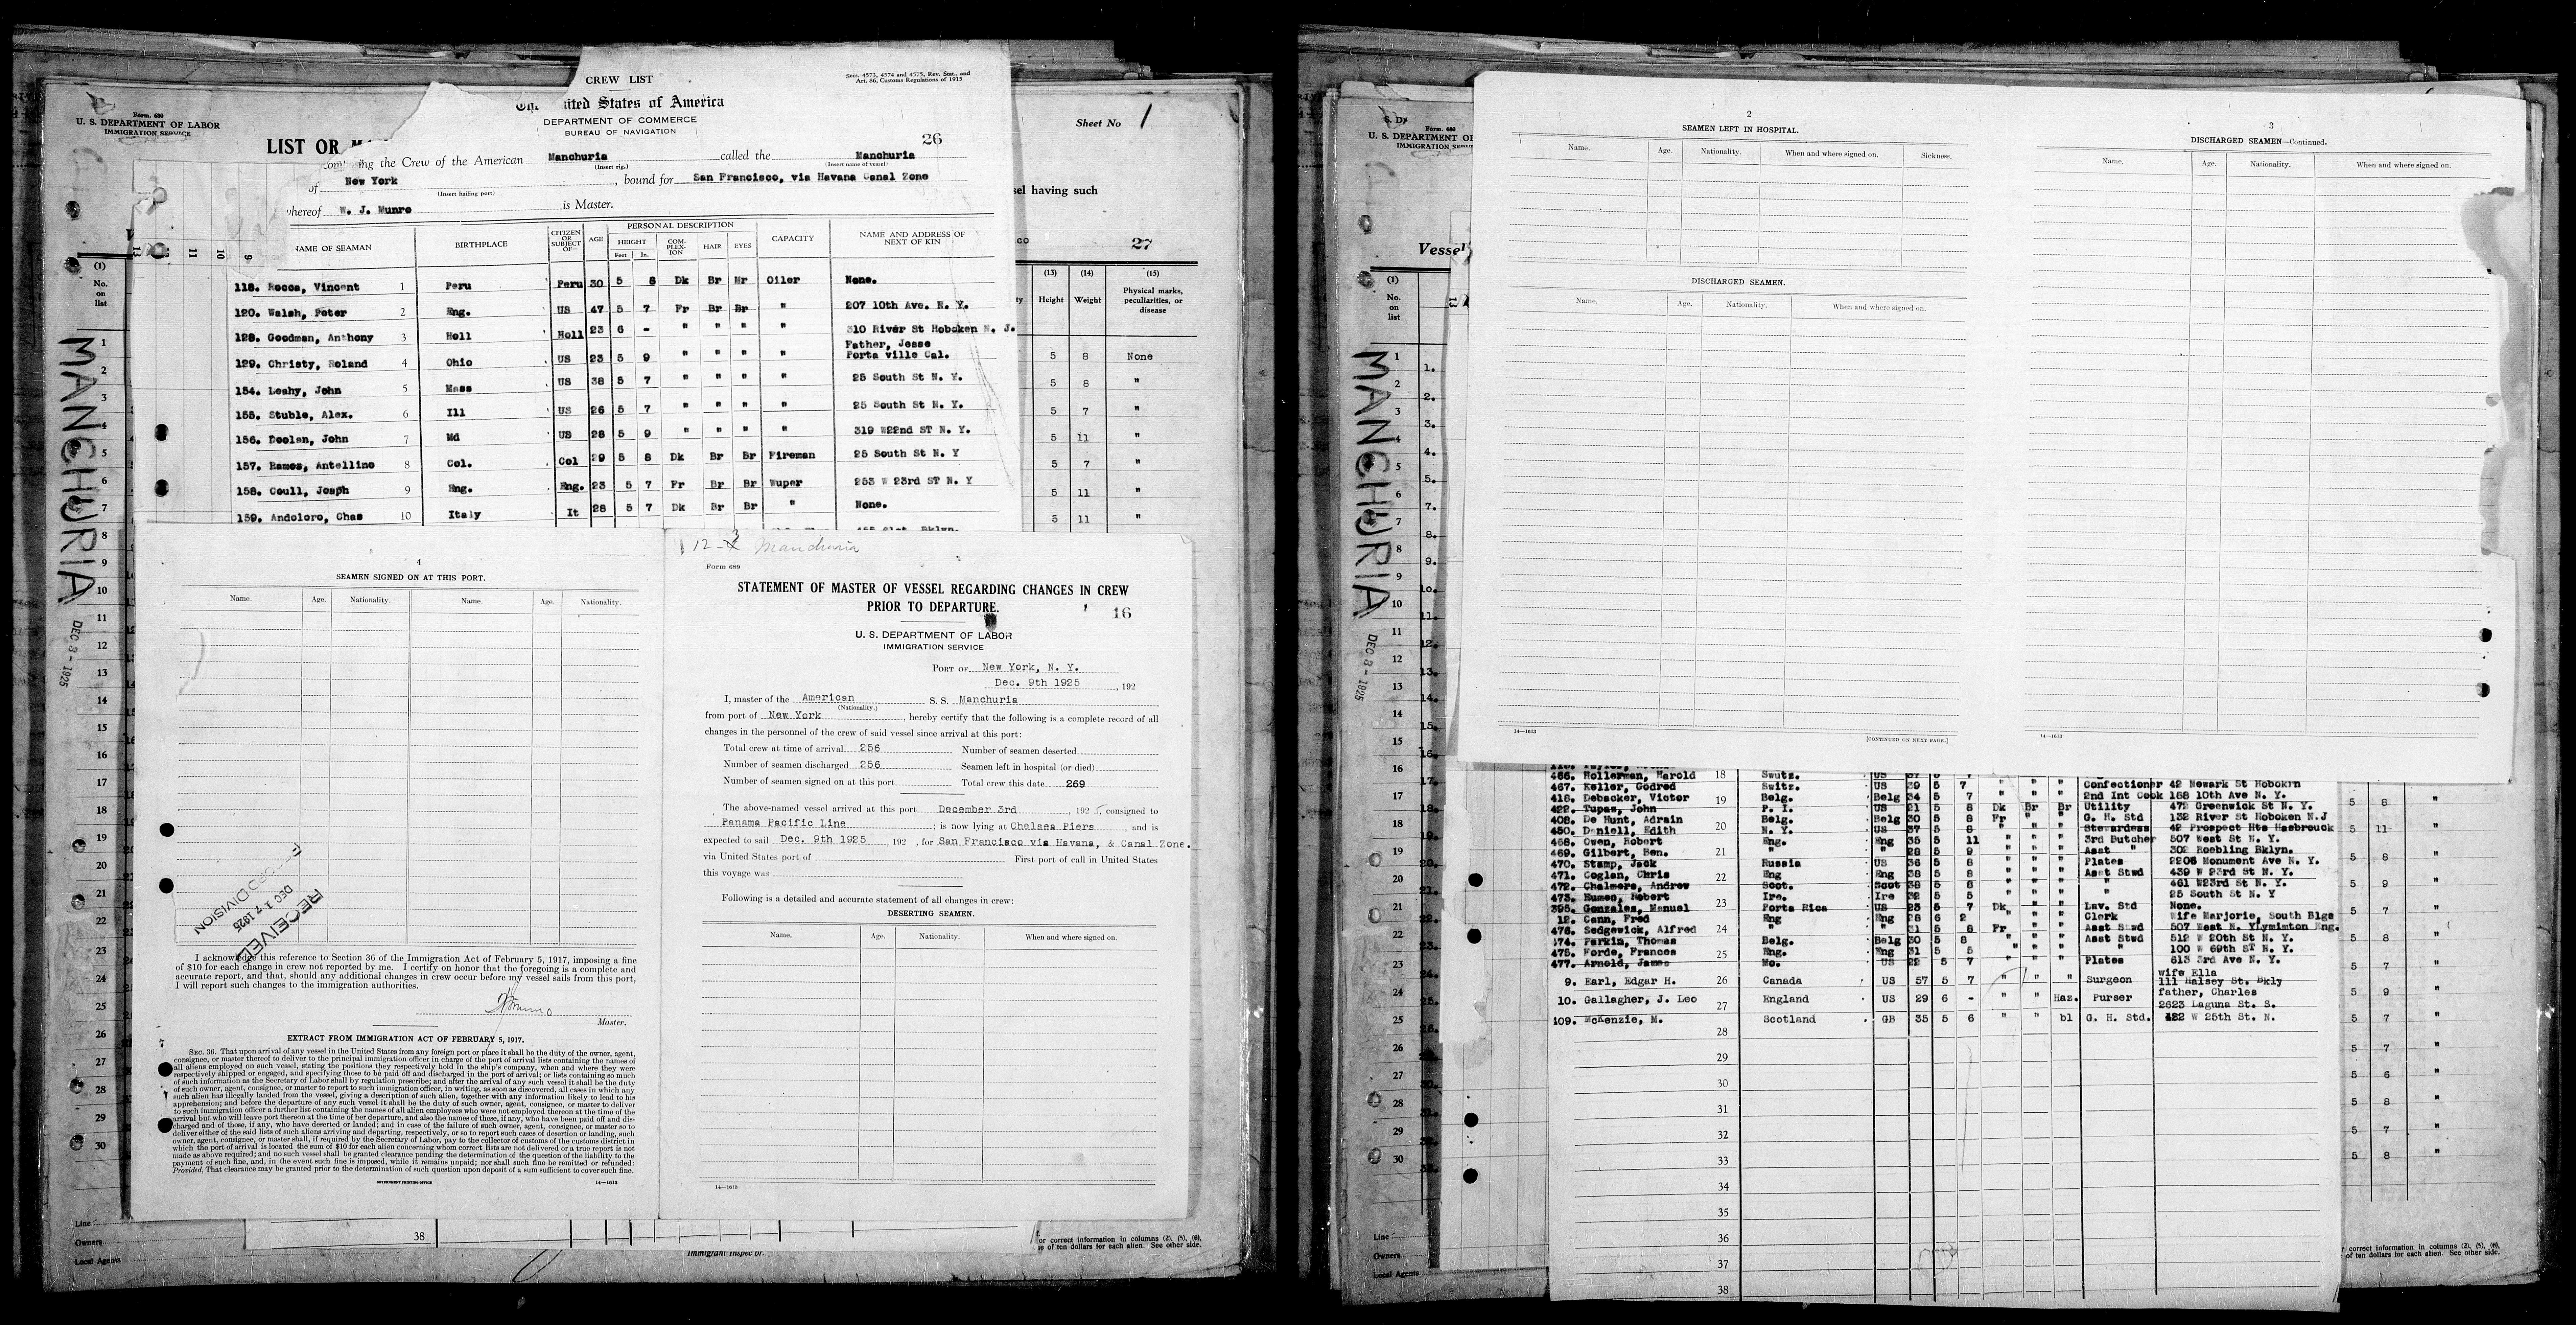 Form. 680
U. S. DEPARTMENT OF LABOR
IMMIGRATION SERVICE
LIST OR
CREW LIST
Secs. 4573, 4574 and 4575, Rev. Stat., and
Art. 86, Customs Regulations of 1915
United States of America
DEPARTMENT OF COMMERCE
BUREAU OF NAVIGATION
26
the Crew of the American Manchuria called the Manchuria
(Insert rig.) (Insert name of vessel)
of New York, bound for San Francisco, via Havana Canal Zone
(Insert hailing port)
whereof W. J. Munro is Master.
Sheet No 1
sel having such
27
NAME OF SEAMAN BIRTHPLACE CITIZEN OR SUBJECT OF— AGE PERSONAL DESCRIPTION HEIGHT Feet In. COMPLEXION HAIR EYES CAPACITY NAME AND ADDRESS OF NEXT OF KIN
118. Rocca, Vincent 1 Peru Peru 30 5 8 Dk Br Mr Oiler None.
120. Walsh, Peter 2 Eng. US 47 5 7 Fr Br Br " 207 10th Ave. N. Y.
128. Goodman, Anthony 3 Holl Holl 23 6 - " " " " 310 River St Hoboken N. J.
129. Christy, Roland 4 Ohio US 23 5 9 " " " " Father, Jesse
Porta ville Cal.
154. Leahy, John 5 Mass US 38 5 7 " " " " 25 South St N. Y.
155. Stuble, Alex. 6 Ill US 26 5 7 " " " " 25 South St N. Y.
156. Doolan, John 7 Md US 28 5 9 " " " " 319 W22nd ST N. Y.
157. Rames, Antellino 8 Col. Col 29 5 8 Dk Br Br Fireman 25 South St N. Y
158. Coull, Josph 9 Eng. Eng. 23 5 7 Fr Br Br Wuper 253 W 23rd ST N. Y
159. Andoloro, Chas 10 Italy It 28 5 7 Dk Br Br " None.
(1)
No.
on
list
(13) (14) (15)
Height Weight Physical marks, peculiarities, or disease
5 8 None
5 8 "
5 7 "
5 11 "
5 7 "
5 11 "
5 11 "
MANCHURIA
DEC 3 - 1925
4
SEAMEN SIGNED ON AT THIS PORT.
Name. Age. Nationality. Name. Age. Nationality.
RECEIVED
DEC 17 1925
RECORD DIVISION
I acknowledge this reference to Section 36 of the Immigration Act of February 5, 1917, imposing a fine
of $10 for each change in crew not reported by me. I certify on honor that the foregoing is a complete and
accurate report, and that, should any additional changes in crew occur before my vessel sails from this port,
I will report such changes to the immigration authorities.
Master.
EXTRACT FROM IMMIGRATION ACT OF FEBRUARY 5, 1917.
SEC. 36. That upon arrival of any vessel in the United States from any foreign port or place it shall be the duty of the owner, agent,
consignee, or master thereof to deliver to the principal immigration officer in charge of the port of arrival lists containing the names of
all aliens employed on such vessel, stating the positions they respectively hold in the ship's company, when and where they were
respectively shipped or engaged, and specifying those to be paid off and discharged in the port of arrival; or lists containing so much
of such information as the Secretary of Labor shall by regulation prescribe; and after the arrival of any such vessel it shall be the duty
of such owner, agent, consignee, or master to report to such immigration officer, in writing, as soon as discovered, all cases in which any
such alien has illegally landed from the vessel, giving a description of such alien, together with any information likely to lead to his
apprehension; and before the departure of any such vessel it shall be the duty of such owner, agent, consignee, or master to deliver
to such immigration officer a further list containing the names of all alien employees who were not employed thereon at the time of the
arrival but who will leave port thereon at the time of her departure, and also the names of those, if any, who have been paid off and dis-
charged and of those, if any, who have deserted or landed; and in case of the failure of such owner, agent, consignee, or master so to
deliver either of the said lists of such aliens arriving and departing, respectively, or so to report such cases of desertion or landing, such
owner, agent, consignee, or master shall, if required by the Secretary of Labor, pay to the collector of customs of the customs district in
which the port of arrival is located the sum of $10 for each alien concerning whom correct lists are not delivered or a true report is not
made as above required; and no such vessel shall be granted clearance pending the determination of the question of the liability to the
payment of such fine, and, in the event such fine is imposed, while it remains unpaid; nor shall such fine be remitted or refunded:
Provided, That clearance may be granted prior to the determination of such question upon deposit of a sum sufficient to cover such fine.
GOVERNMENT PRINTING OFFICE 14—1613
12-3 Manchuria
Form 689
STATEMENT OF MASTER OF VESSEL REGARDING CHANGES IN CREW
PRIOR TO DEPARTURE.
16
U. S. DEPARTMENT OF LABOR
IMMIGRATION SERVICE
PORT OF New York, N. Y.
Dec. 9th 1925, 192
I, master of the American S. S. Manchuria
(Nationality.)
from port of New York, hereby certify that the following is a complete record of all
changes in the personnel of the crew of said vessel since arrival at this port:
Total crew at time of arrival 256 Number of seamen deserted
Number of seamen discharged 256 Seamen left in hospital (or died)
Number of seamen signed on at this port Total crew this date 269
The above-named vessel arrived at this port December 3rd, 1925, consigned to
Panama Pacific Line; is now lying at Chelsea Piers and is
expected to sail Dec. 9th 1925, 192, for San Francisco via Havana, & Canal Zone.
via United States port of First port of call in United States
this voyage was
Following is a detailed and accurate statement of all changes in crew:
DESERTING SEAMEN.
Name. Age. Nationality. When and where signed on.
14—1613
38
Line
Owners
Local Agents
Immigrant Inspector.
or correct information in columns (2), (5), (6),
e of ten dollars for each alien. See other side.
Form 680
U. S. DEPARTMENT OF
IMMIGRATION SERV
Vessel
(1)
No.
on
list
MANCHURIA
DEC 3 - 1925
2
SEAMEN LEFT IN HOSPITAL.
Name. Age. Nationality. When and where signed on. Sickness.
DISCHARGED SEAMEN.
Name. Age. Nationality. When and where signed on.
14—1613 [CONTINUED ON NEXT PAGE.]
3
DISCHARGED SEAMEN—Continued.
Name. Age. Nationality. When and where signed on.
14—1613
466. Hollerman, Harold 18 Swutz. US 37 5
467. Keller, Godred Switz. US 39 5 7 " " " Confectioner 42 Newark St Hobokrn
418. Debacker, Victor 19 Belg. Belg 34 5 7 " " " 2nd Int Cook 168 10th Ave N. Y.
422. Tupas, John P. I. US 21 5 8 Dk Br Br Utility 472 Greenwick St N. Y.
408. De Hunt, Adrain Belg. Belg 30 5 8 Fr " " G. H. Std 132 River St Hoboken N.J
450. Daniell, Edith 20 N. Y. US 37 5 8 " " " Stewardess 42 Prospect Hts Hasbrouck
468. Owen, Robert Eng. Eng 35 5 11 " " " 3rd Butcher 507 West St N. Y.
469. Gilbert, Ben. 21 " " 28 5 9 " " " Asst " 302 Roebling Bklyn.
470. Stamp, Jack Russia US 36 5 8 " " " Plates 2206 Monument Ave N. Y.
471. Coglan, Chris 22 Eng Eng 38 5 8 " " " Asst Stwd 439 W 23rd St N. Y.
472. Chalmers, Andrew Scot. Scot 38 5 8 " " " " 461 W23rd St N. Y.
473. Humes, Robert Ire. Ire 32 5 5 " " " " 25 South St N. Y
395. Gonzales, Manuel 23 Porta Rica US 25 5 7 Dk " " Lav. Std None.
12. Cann, Fred Eng Eng 28 6 2 " " " Clerk Wife Marjorie, South Blgs
476. Sedgewick, Alfred 24 " " 31 5 8 Fr " " Asst Stwd 507 West N. Ylymimton Eng.
474. Parkin, Thomas Belg. Belg 30 5 8 " " " Asst Stwd 512 W 20th St N. Y.
475. Forde, Frances 25 Eng. Eng 31 5 5 " " " 100 W 69th ST N. Y.
477. Arnold, James Mo. US 22 5 7 " " " Plates 613 3rd Ave N. Y.
9. Earl, Edgar H. 26 Canada US 57 5 7 " " " Surgeon wife Ella
111 Halsey St. Bkly
10. Gallagher, J. Leo 27 England US 29 6 - " " Haz. Purser father, Charles
2623 Laguna St. S.
109. McKenzie, M. Scotland GB 35 5 6 " " bl G. H. Std. 422 W 25th St. N.
28
29
30
31
32
33
34
35
36
37
38
Line
Owners
Local Agents
r correct information in columns (2), (5), (6),
of ten dollars for each alien. See other side.